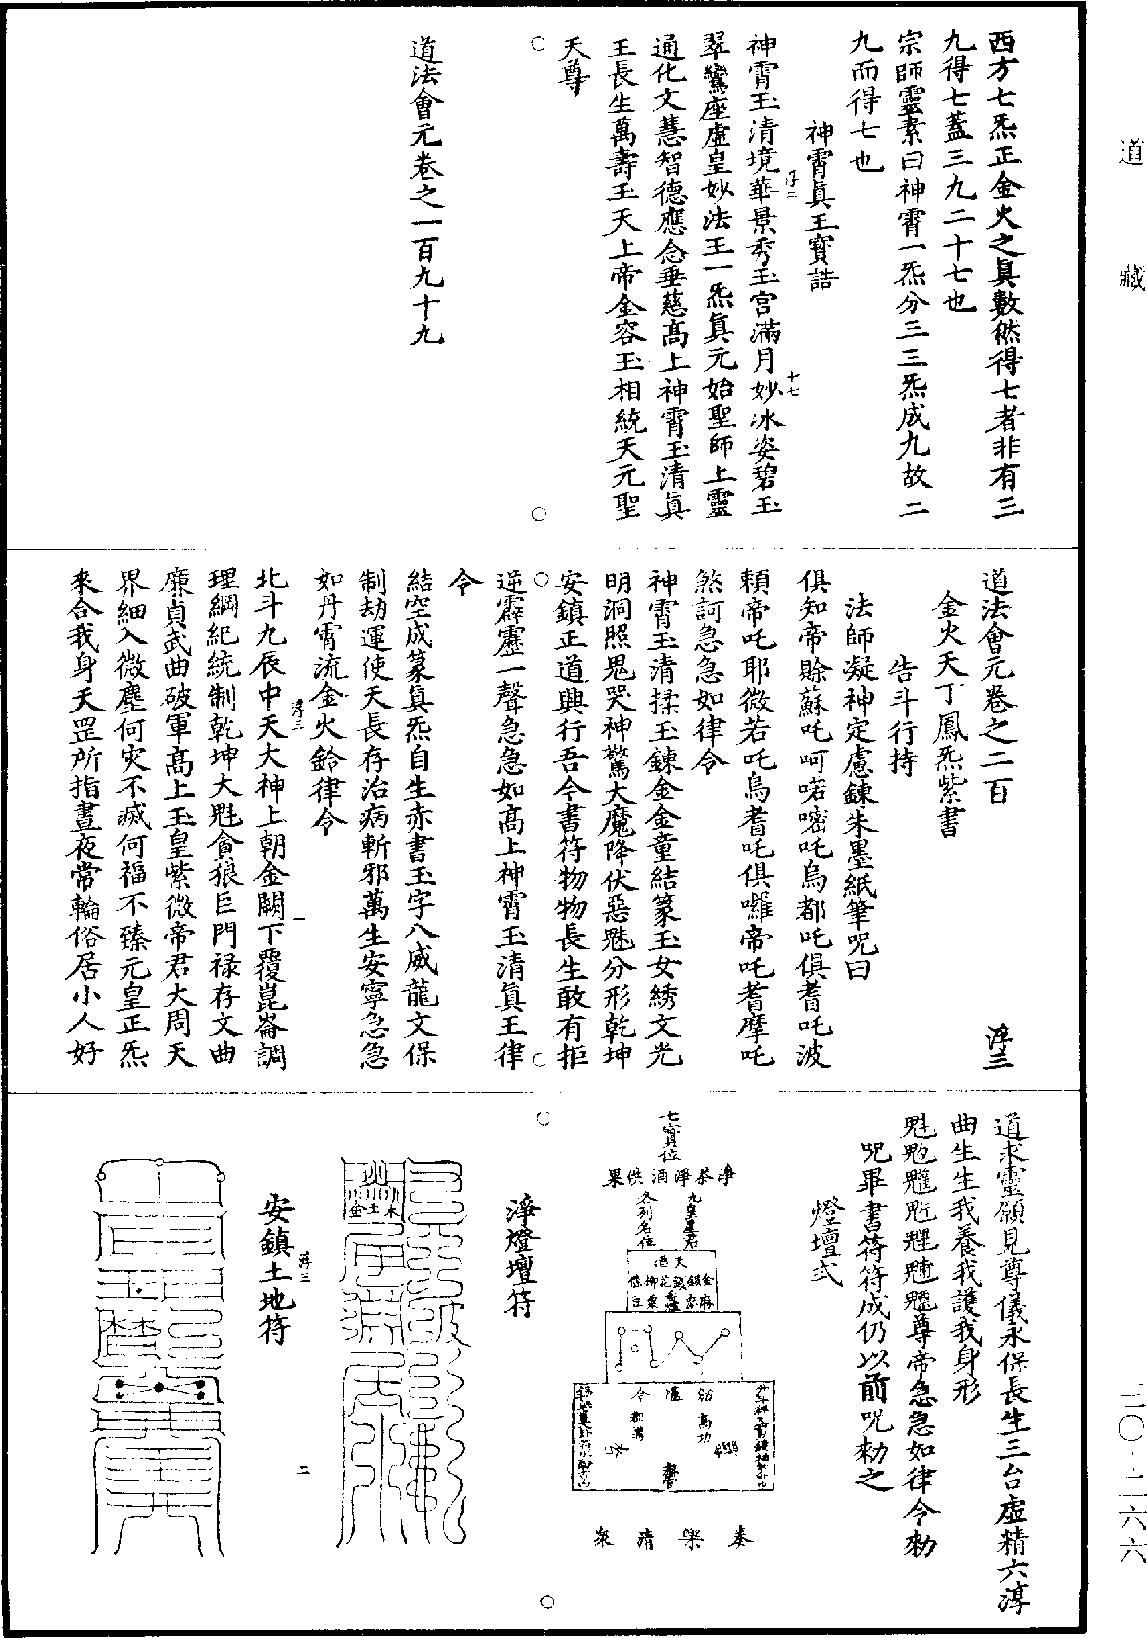 道藏
西方七炁正金火之眞數然得七者非有三
九得七蓋三九二十七也
宗師靈素曰神霄一炁分三三炁成九故二
九而得七也
神霄眞王寶誥
神霄玉清境華景秀玉宮滿月妙冰姿碧玉
翠鸞座虛皇妙法王一炁眞元始聖師上靈
通化文慧智德應念垂慈高上神霄玉清眞
王長生萬壽玉天上帝金容玉相統天元聖
天尊
道法會元卷之一百九十九
道法會元卷之二百
淳三
金火天丁鳳炁紫書
告斗行持
法師凝神定慮鍊朱墨紙筆呪曰
俱知帝賒蘇吒呵喏嘧吒烏都吒俱耆吒波
頼帝吒耶微若吒烏耆吒俱囉帝吒耆摩吒
煞訶急急如律令
神霄玉清揉玉鍊金金童結篆玉女綉文光
明洞照鬼哭神驚大魔降伏惡魅分形乾坤
安鎮正道興行吾今書符物物長生敢有拒
逆霹靂一聲急急如高上神霄玉清眞王律
令
結空成篆眞炁自生赤書玉字八威龍文保
制劫運使天長存治病斬邪萬生安寧急急
如丹霄流金火鈴律令
北斗九辰中天大神上朝金闕下覆崑崙調
理綱紀統制乾坤大魁貪狼巨門禄存文曲
廉貞武曲破軍高上玉皇紫微帝君大周天
界細入微塵何灾不滅何福不臻元皇正炁
來合我身天罡所指晝夜常輪俗居小人好
道求靈願見尊儀永保長生三台虛精六淳
曲生生我養我護我身形
尊帝急急如律令勑
呪畢書符符成仍以前呪勑之
燈壇式
七寶位
淨茶淨酒供果
九皇星君
各列名位
奏樂清衆
淨燈壇符
安鎮土地符
二
三〇·二六六